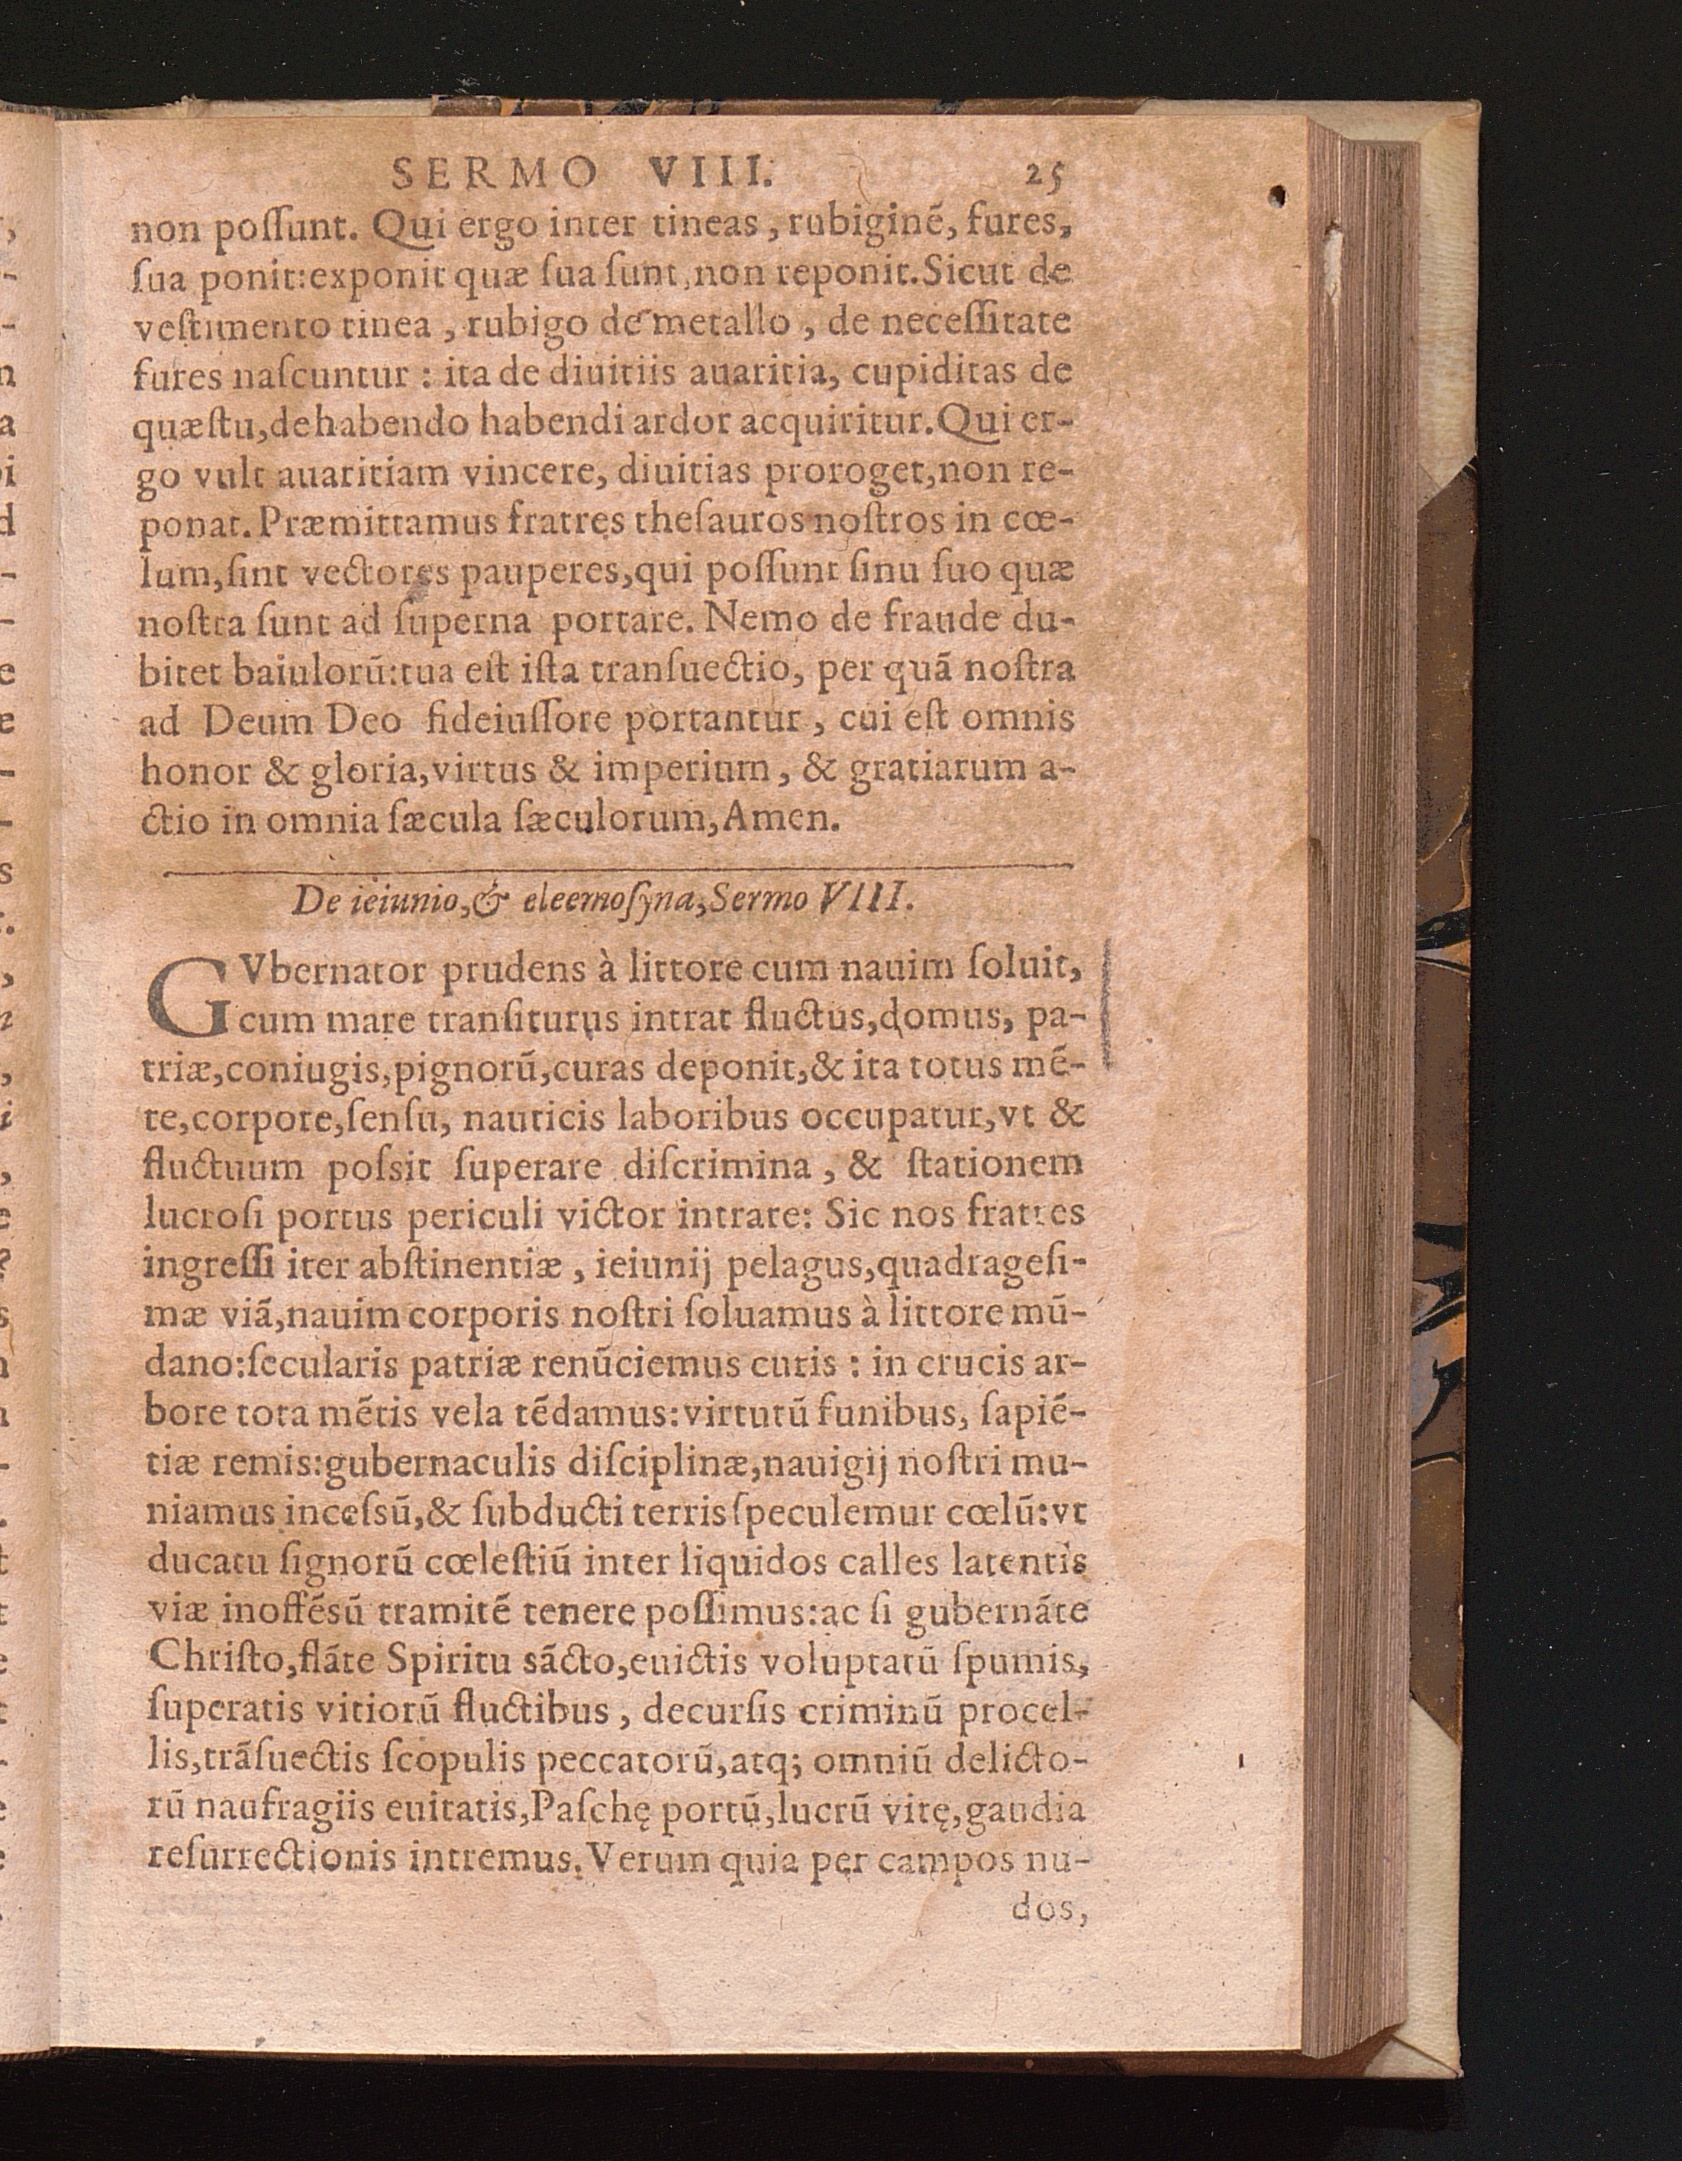 SERMO VIII. 25
non poſſunt. Qui ergo inter tineas, rubiginẽ, fures,
ſua ponit:exponit quæ ſua ſunt,non reponit.Sicut de
veſtimento tinea, rubigo de metallo, de neceſſitate
fures naſcuntur: ita de diuitiis auaritia, cupiditas de
quæſtu,de habendo habendi ardor acquiritur.Qui er-
go vult auaritiam vincere, diuitias proroget,non re-
ponat.Præmittamus fratres theſauros noſtros in cœ-
lum,ſint vectores pauperes,qui poſſunt ſinu ſuo quæ
noſtra ſunt ad ſuperna portare. Nemo de fraude du-
bitet baiulorũ:tua eſt iſta tranſuectio, per quã noſtra
ad Deum Deo fideiuſſore portantur, cui eſt omnis
honor & gloria,virtus & imperium, & gratiarum a-
ctio in omnia ſæcula ſæculorum,Amen.
De ieiunio,& eleemoſyna,Sermo VIII.
GVbernator prudens à littore cum nauim ſoluit,
cum mare tranſiturus intrat fluctus,domus, pa-
triæ,coniugis,pignorũ,curas deponit,& ita totus mẽ-
te,corpore,ſenſu, nauticis laboribus occupatur,vt &
fluctuum poſsit ſuperare diſcrimina, & ſtationem
lucroſi portus periculi victor intrare: Sic nos fratres
ingreſſi iter abſtinentiæ, ieiunij pelagus,quadrageſi-
mæ viã,nauim corporis noſtri ſoluamus à littore mũ-
dano:ſecularis patriæ renũciemus curis: in crucis ar-
bore tota mẽtis vela tẽdamus:virtutũ funibus, ſapiẽ-
tiæ remis:gubernaculis diſciplinæ,nauigij noſtri mu-
niamus inceſsũ,& ſubducti terris ſpeculemur cœlũ:vt
ducatu ſignorũ cœleſtiũ inter liquidos calles latentis
viæ inoffẽsũ tramitẽ tenere poſſimus:ac ſi gubernãte
Chriſto,flãte Spiritu sãcto,euictis voluptatũ ſpumis,
ſuperatis vitiorũ fluctibus, decurſis criminũ procel-
lis,trãſuectis ſcopulis peccatorũ,atq; omniũ delicto-
rũ naufragiis euitatis,Paſchę portũ,lucrũ vitę,gaudia
reſurrectionis intremus.Verum quia per campos nu-
dos,